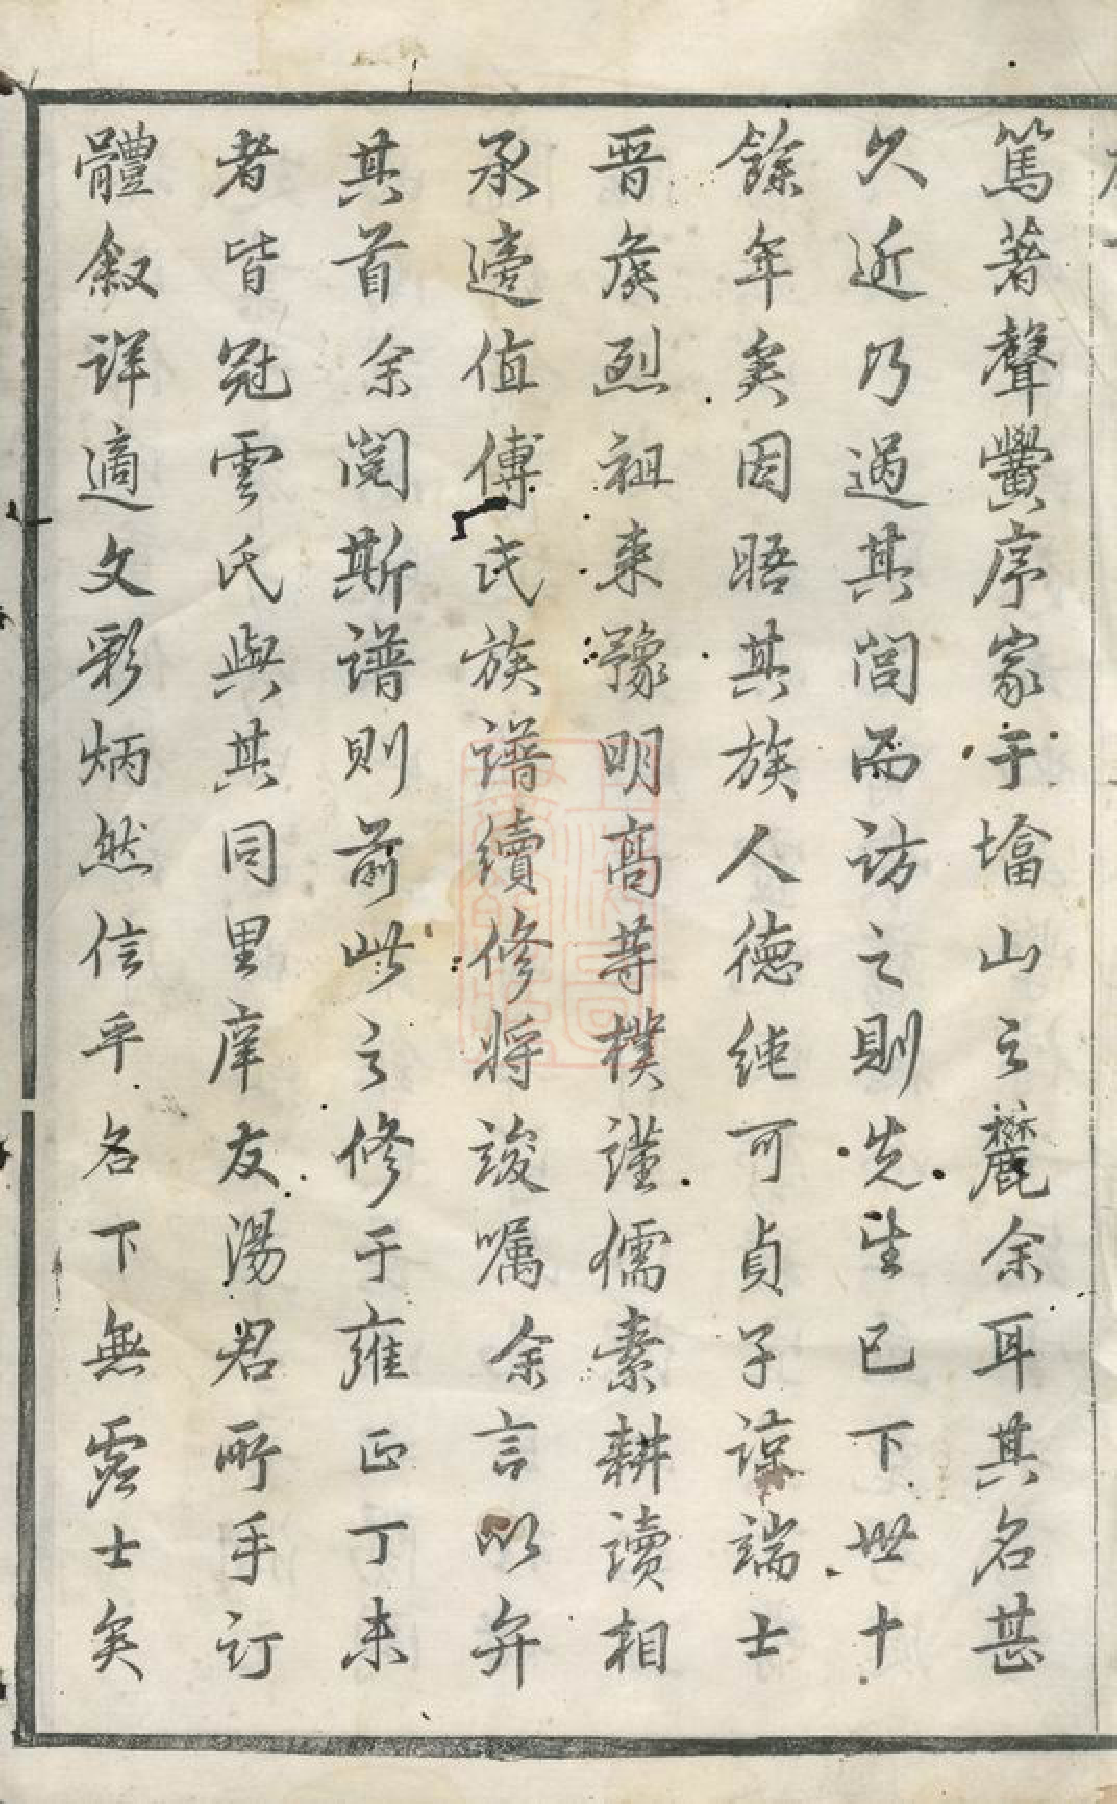 篤著聲黌序家于㙮山之麓余耳其名甚
久近乃過其閭而訪之則先生已下世十
餘年矣因晤其族人德純可貞子諒端士
晋侯烈祖來豫明高等樸謹儒素耕讀相
承適值傅氏族譜續修將竣嘱余言以弁
其首余閱斯譜則前此之修于雍正丁未
者皆冠雲氏與其同里庠友湯君所手訂
體叙詳適文彩炳然信乎名下無虛士矣